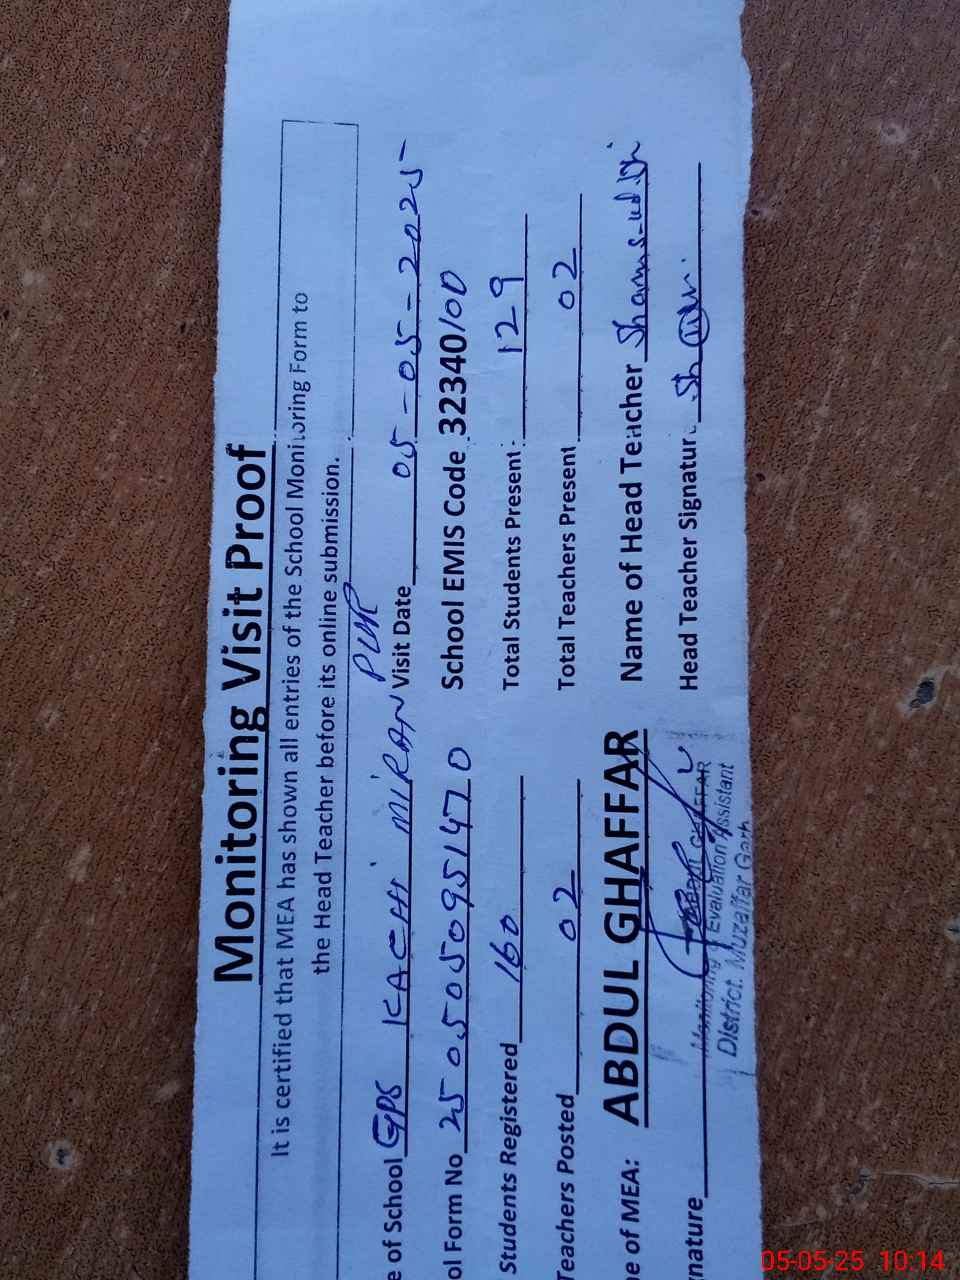 Monitoring Visit Proof
It is certified that MEA has shown all entries of the School Monitoring Form to
the Head Teacher before its online submission.
e of School GPS KACHI MIRAN PUR Visit Date 05-05-2025
ol Form No 2505050951470 School EMIS Code 32340100
Students Registered 160 Total Students Present: 129
Teachers Posted 02 Total Teachers Present 02
e of MEA: ABDUL GHAFFAR Name of Head Teacher Shams-ud-din
nature Head Teacher Signature
ABDUL GHAFFAR
Monitoring & Evaluation Assistant
District. Muzaffar Garh
05-05-25 10:14